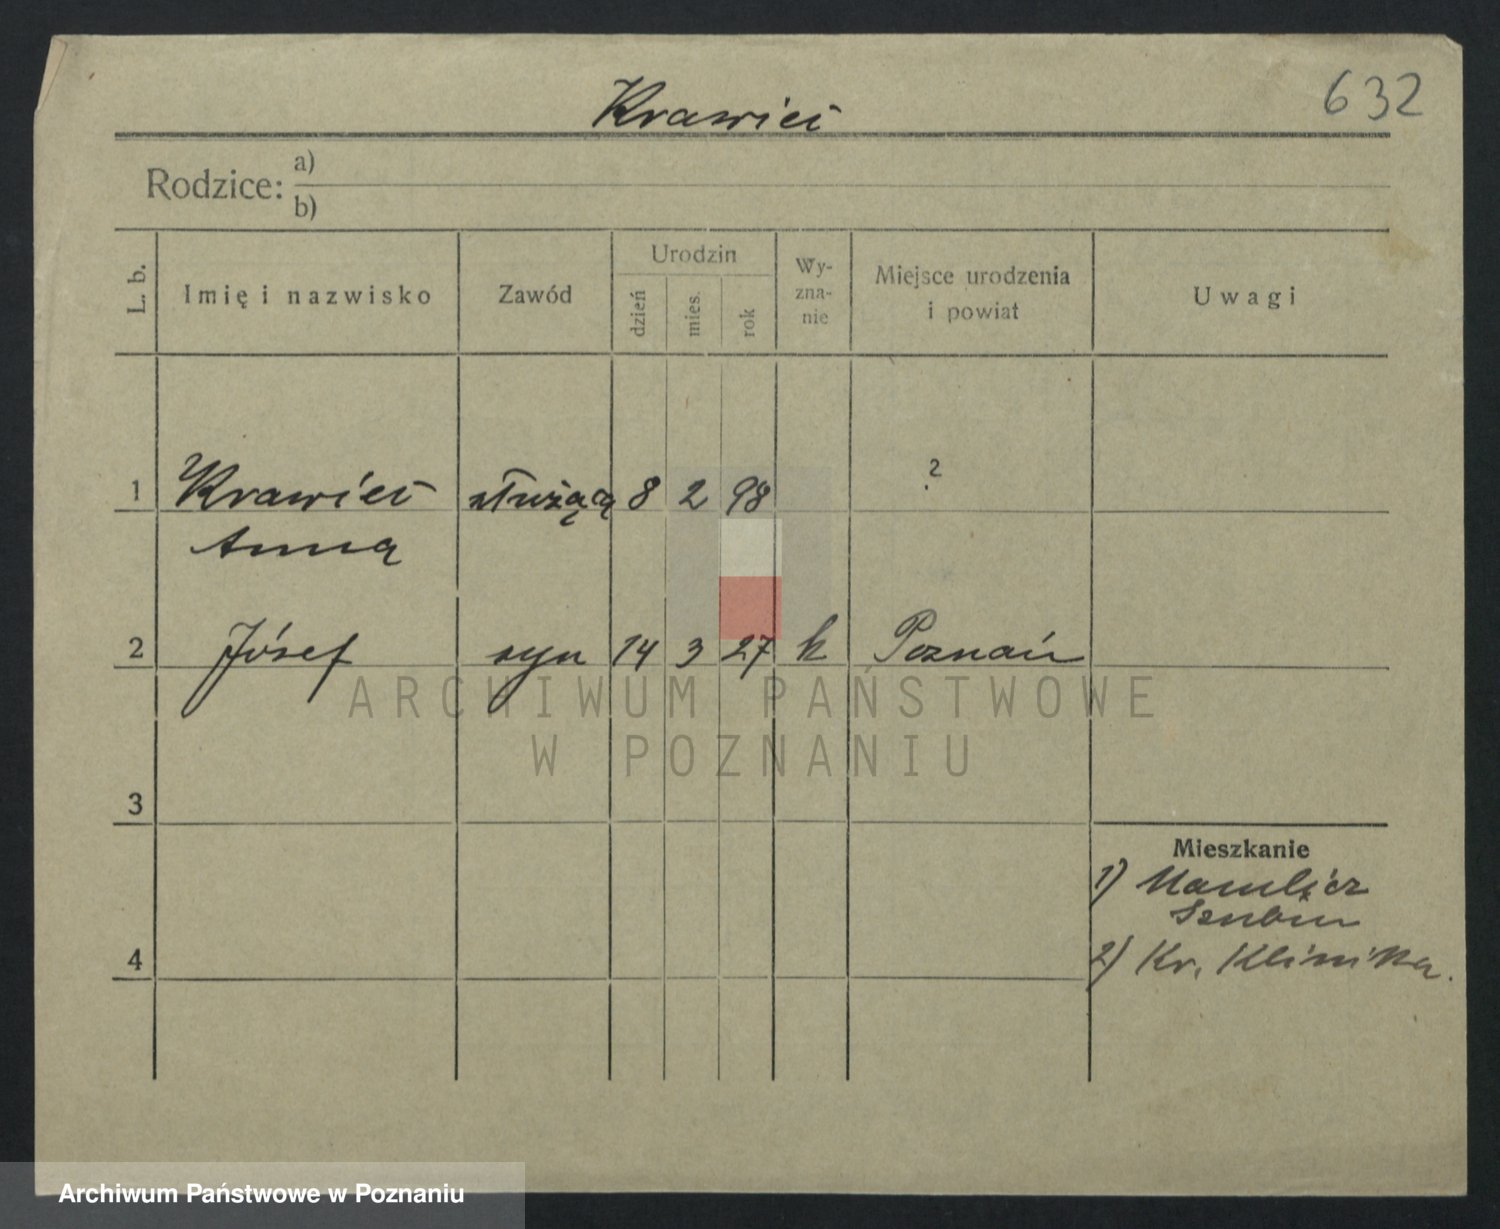 632
Krawiec
Rodzice: a)
b)
L. b. Imię i nazwisko Zawód Urodzin dzień mies. rok Wy-zna-nie Miejsce urodzenia i powiat Uwagi
1 Krawiec służącą 8 2 98 ?
Anna
2 Józef syn 14 3 27 k Poznań
ARCHIWUM PAŃSTWOWE
W POZNANIU
3
Mieszkanie
1)
Szubin
4
2) Kr. Klinika.
Archiwum Państwowe w Poznaniu